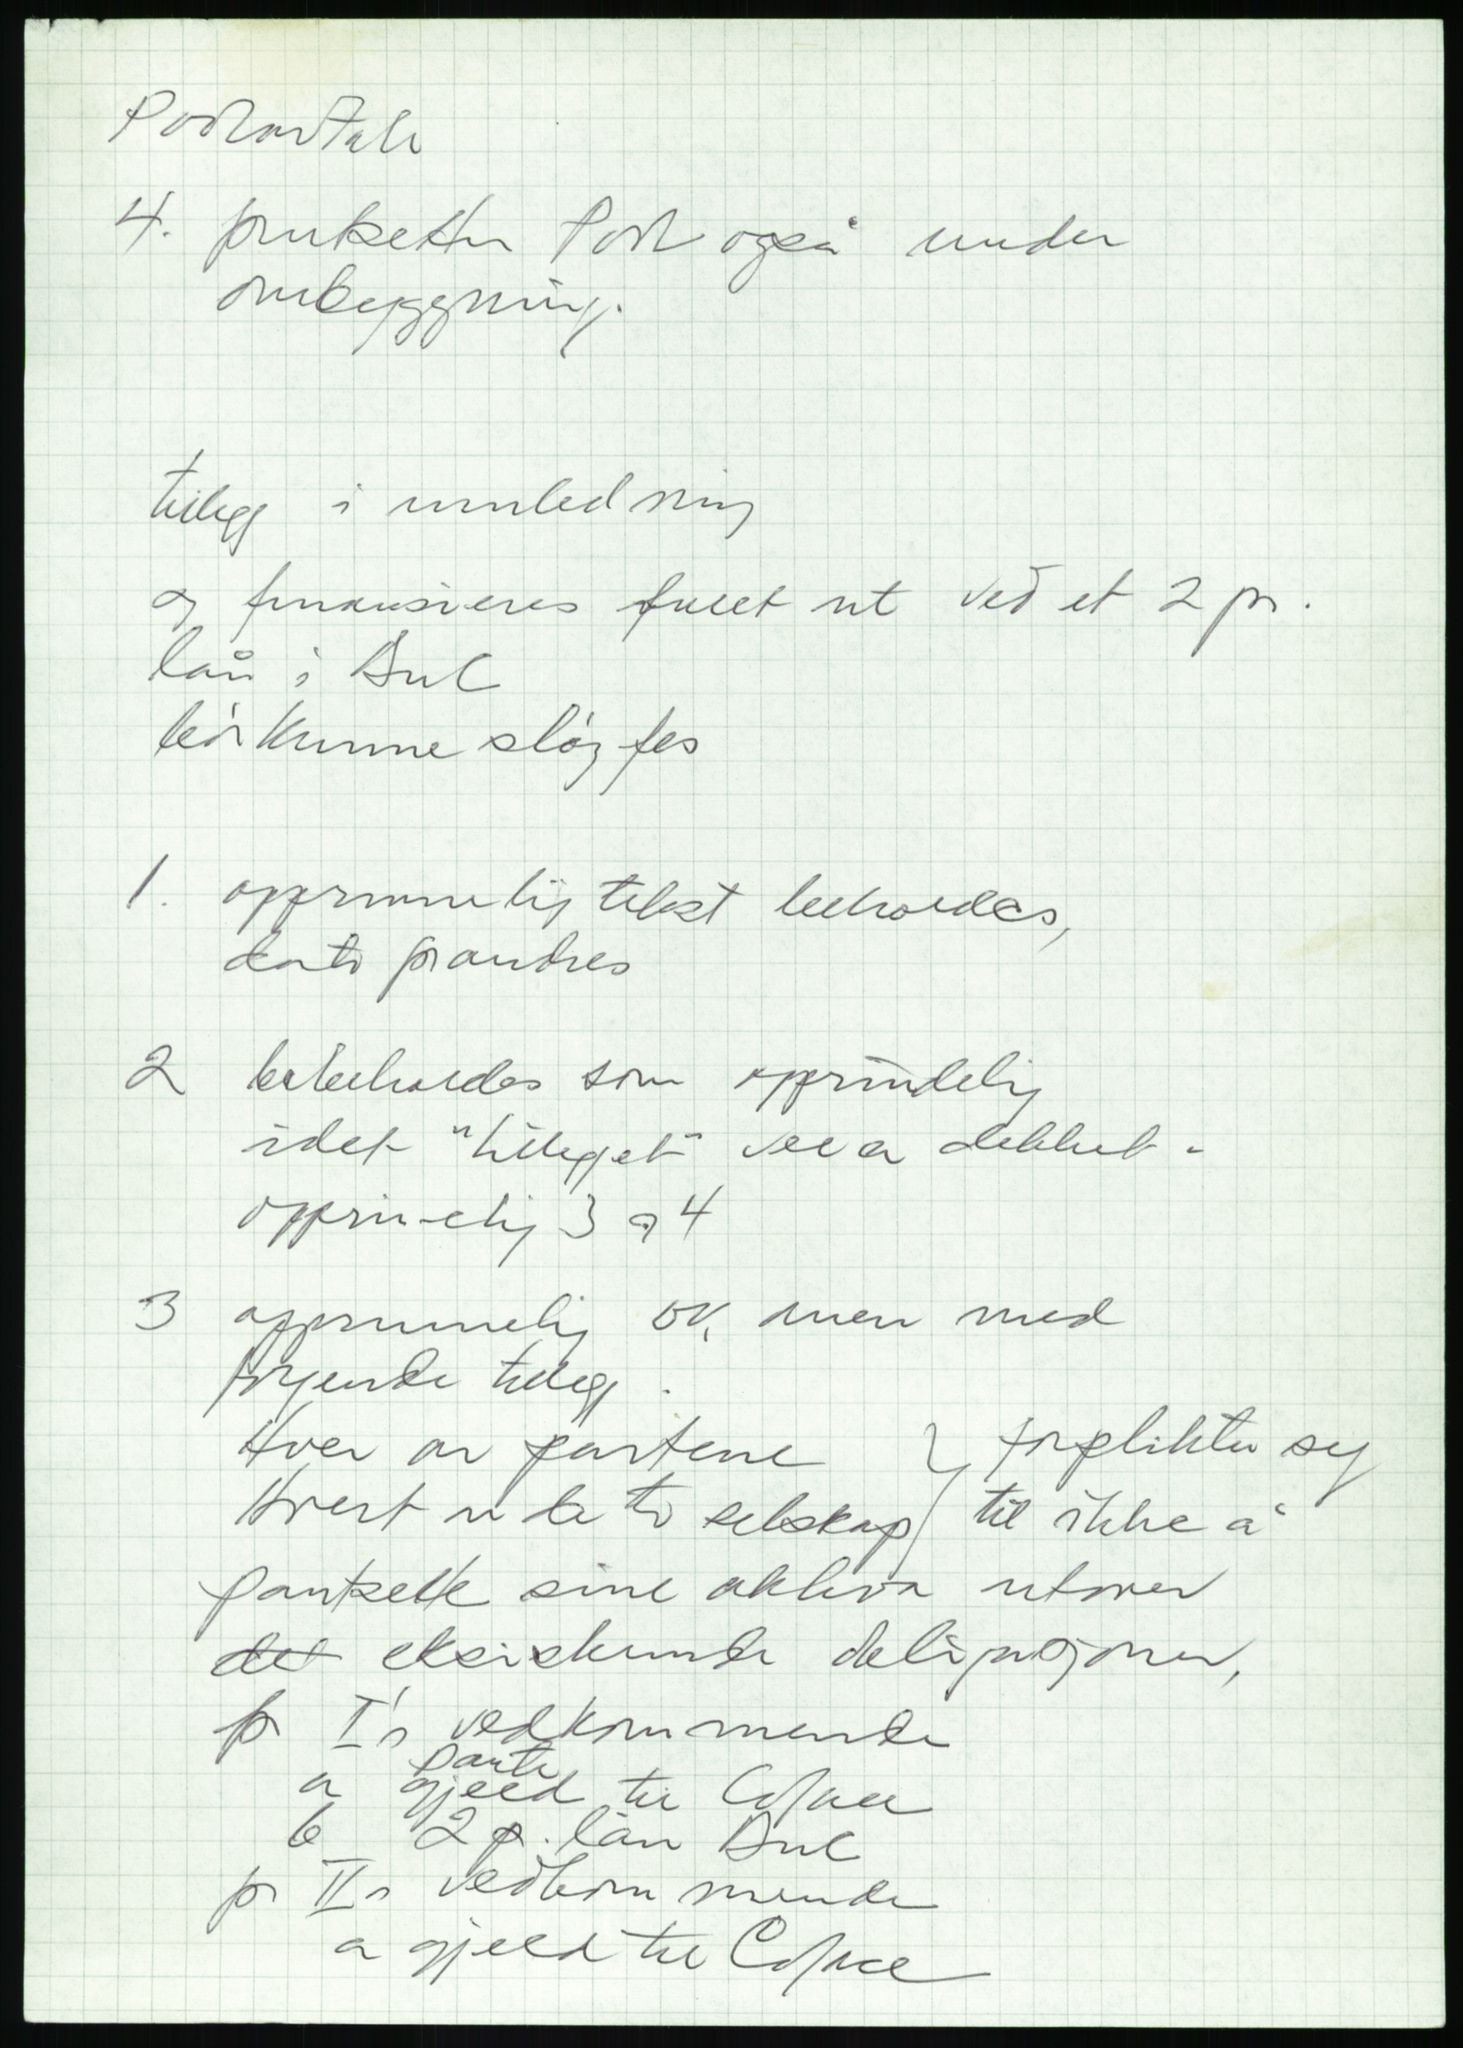 Poolavtale
4. forutsetter Pool også under
ombygging.
tillegg i innledning
og finansieres fullt ut ved et 2 pr.
lån i DnC
bør kunne sløyfes
1. opprinnelig tekst beholdes,
dato forandres
2 bibeholdes som opprindelig
idet "tillegget" vil er dekket -
opprinnelig 3 og 4
3 opprinnelig OK, men med
følgende tillegg.
Hver av partene } forplikter seg
Hvert av de to selskap } til ikke å
pantsette sine aktiva utover
det eksisterende obligasjoner,
for I's vedkommende
pante
a gjeld til Coface
b 2 p. lån DnC
for II's vedkommende
a gjeld til Coface